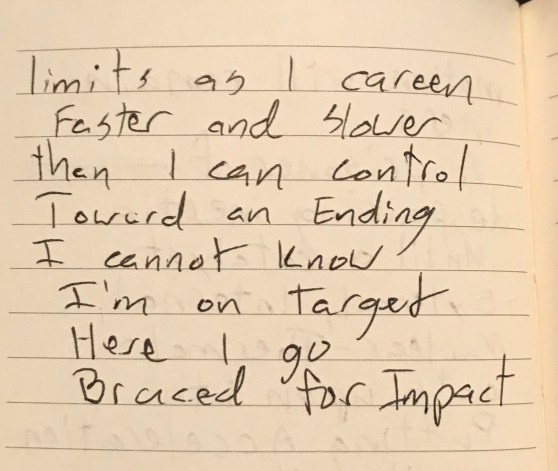 limits as I careen
Faster and slower
than I can control
Toward an Ending
I cannot know
I'm on target
Here I go
Braced for Impact